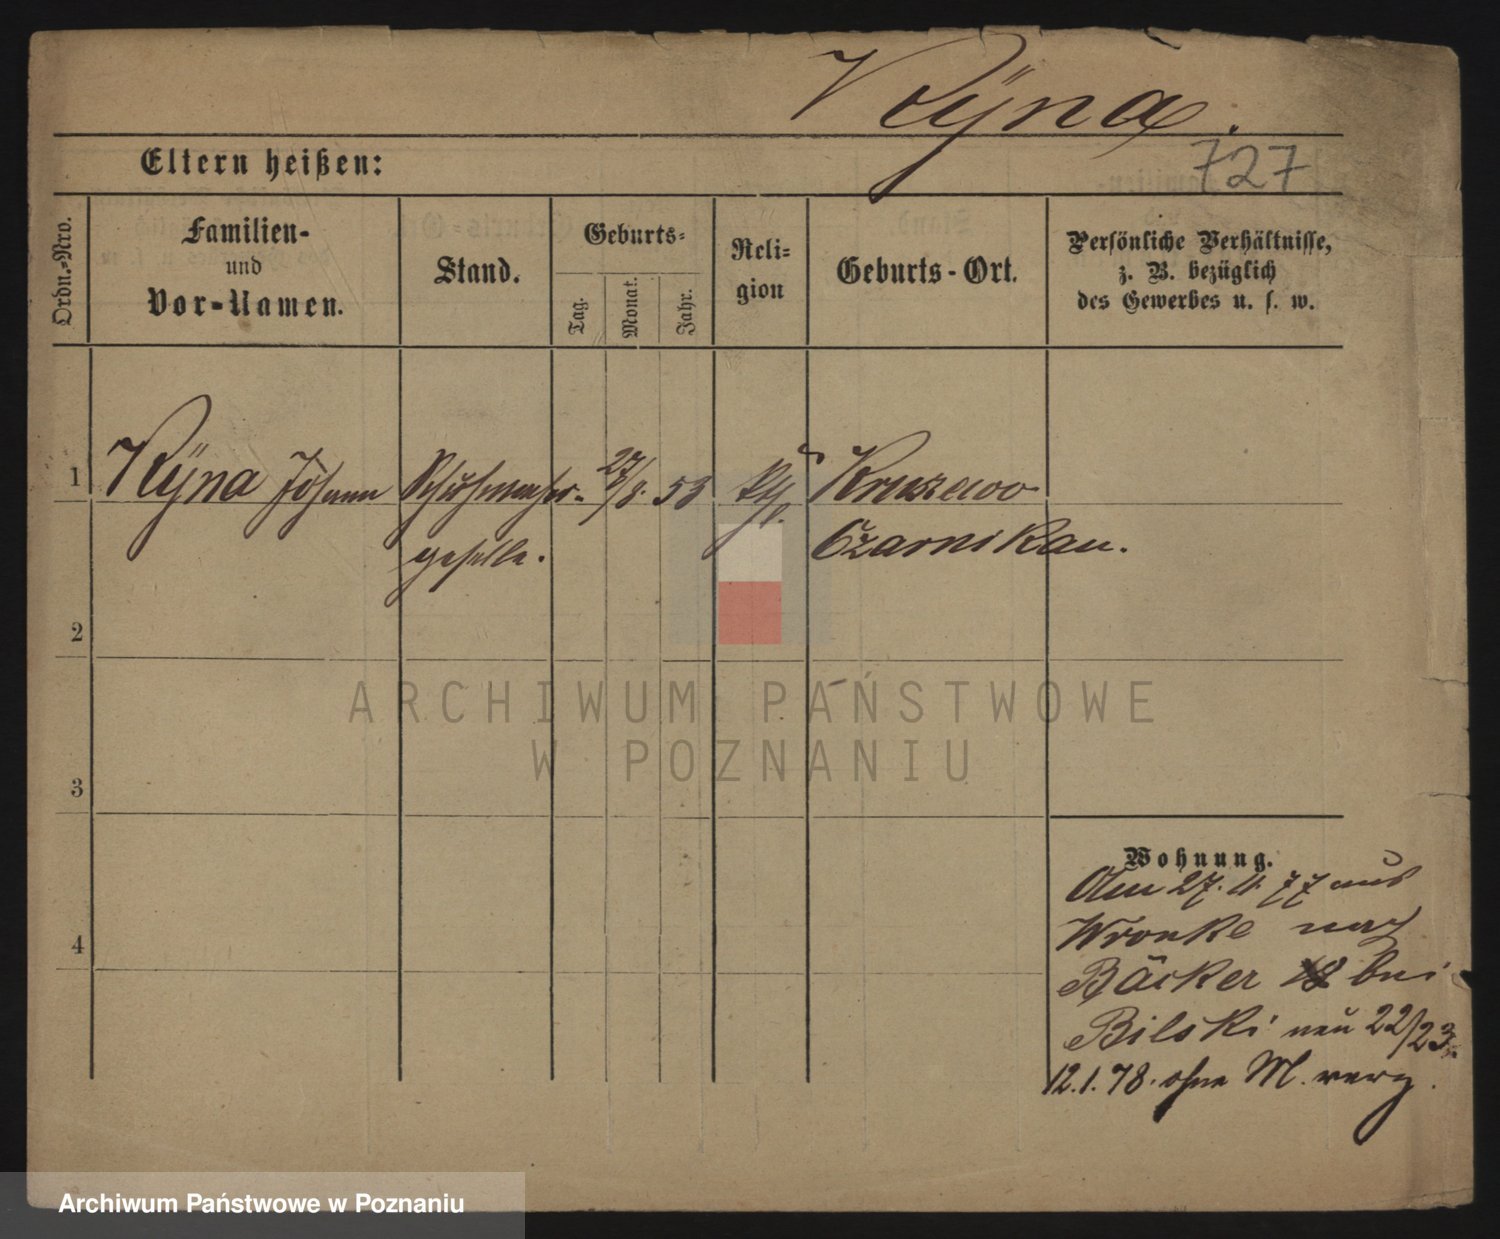 Kÿna.
727
Eltern heißen:
Ordn.-Nro.
Familien-
und
Vor-Namen.
Stand.
Geburts-
Tag.
Monat.
Jahr.
Reli-
gion
Geburts-Ort.
Persönliche Verhältnisse,
z. B. bezüglich
des Gewerbes u. s. w.
1 Kÿna Johann Schuhmacher- 27/8. 53 kth. Kruszewo
geselle. Czarnikau.
2
3
4
ARCHIWUM PAŃSTWOWE
W POZNANIU
Wohnung.
Am 27. 11. 77 aus
Wronke nach
Bäcker 18 bei
Bilski neu 22/23.
12.1.78. ohne M. verz.
Archiwum Państwowe w Poznaniu